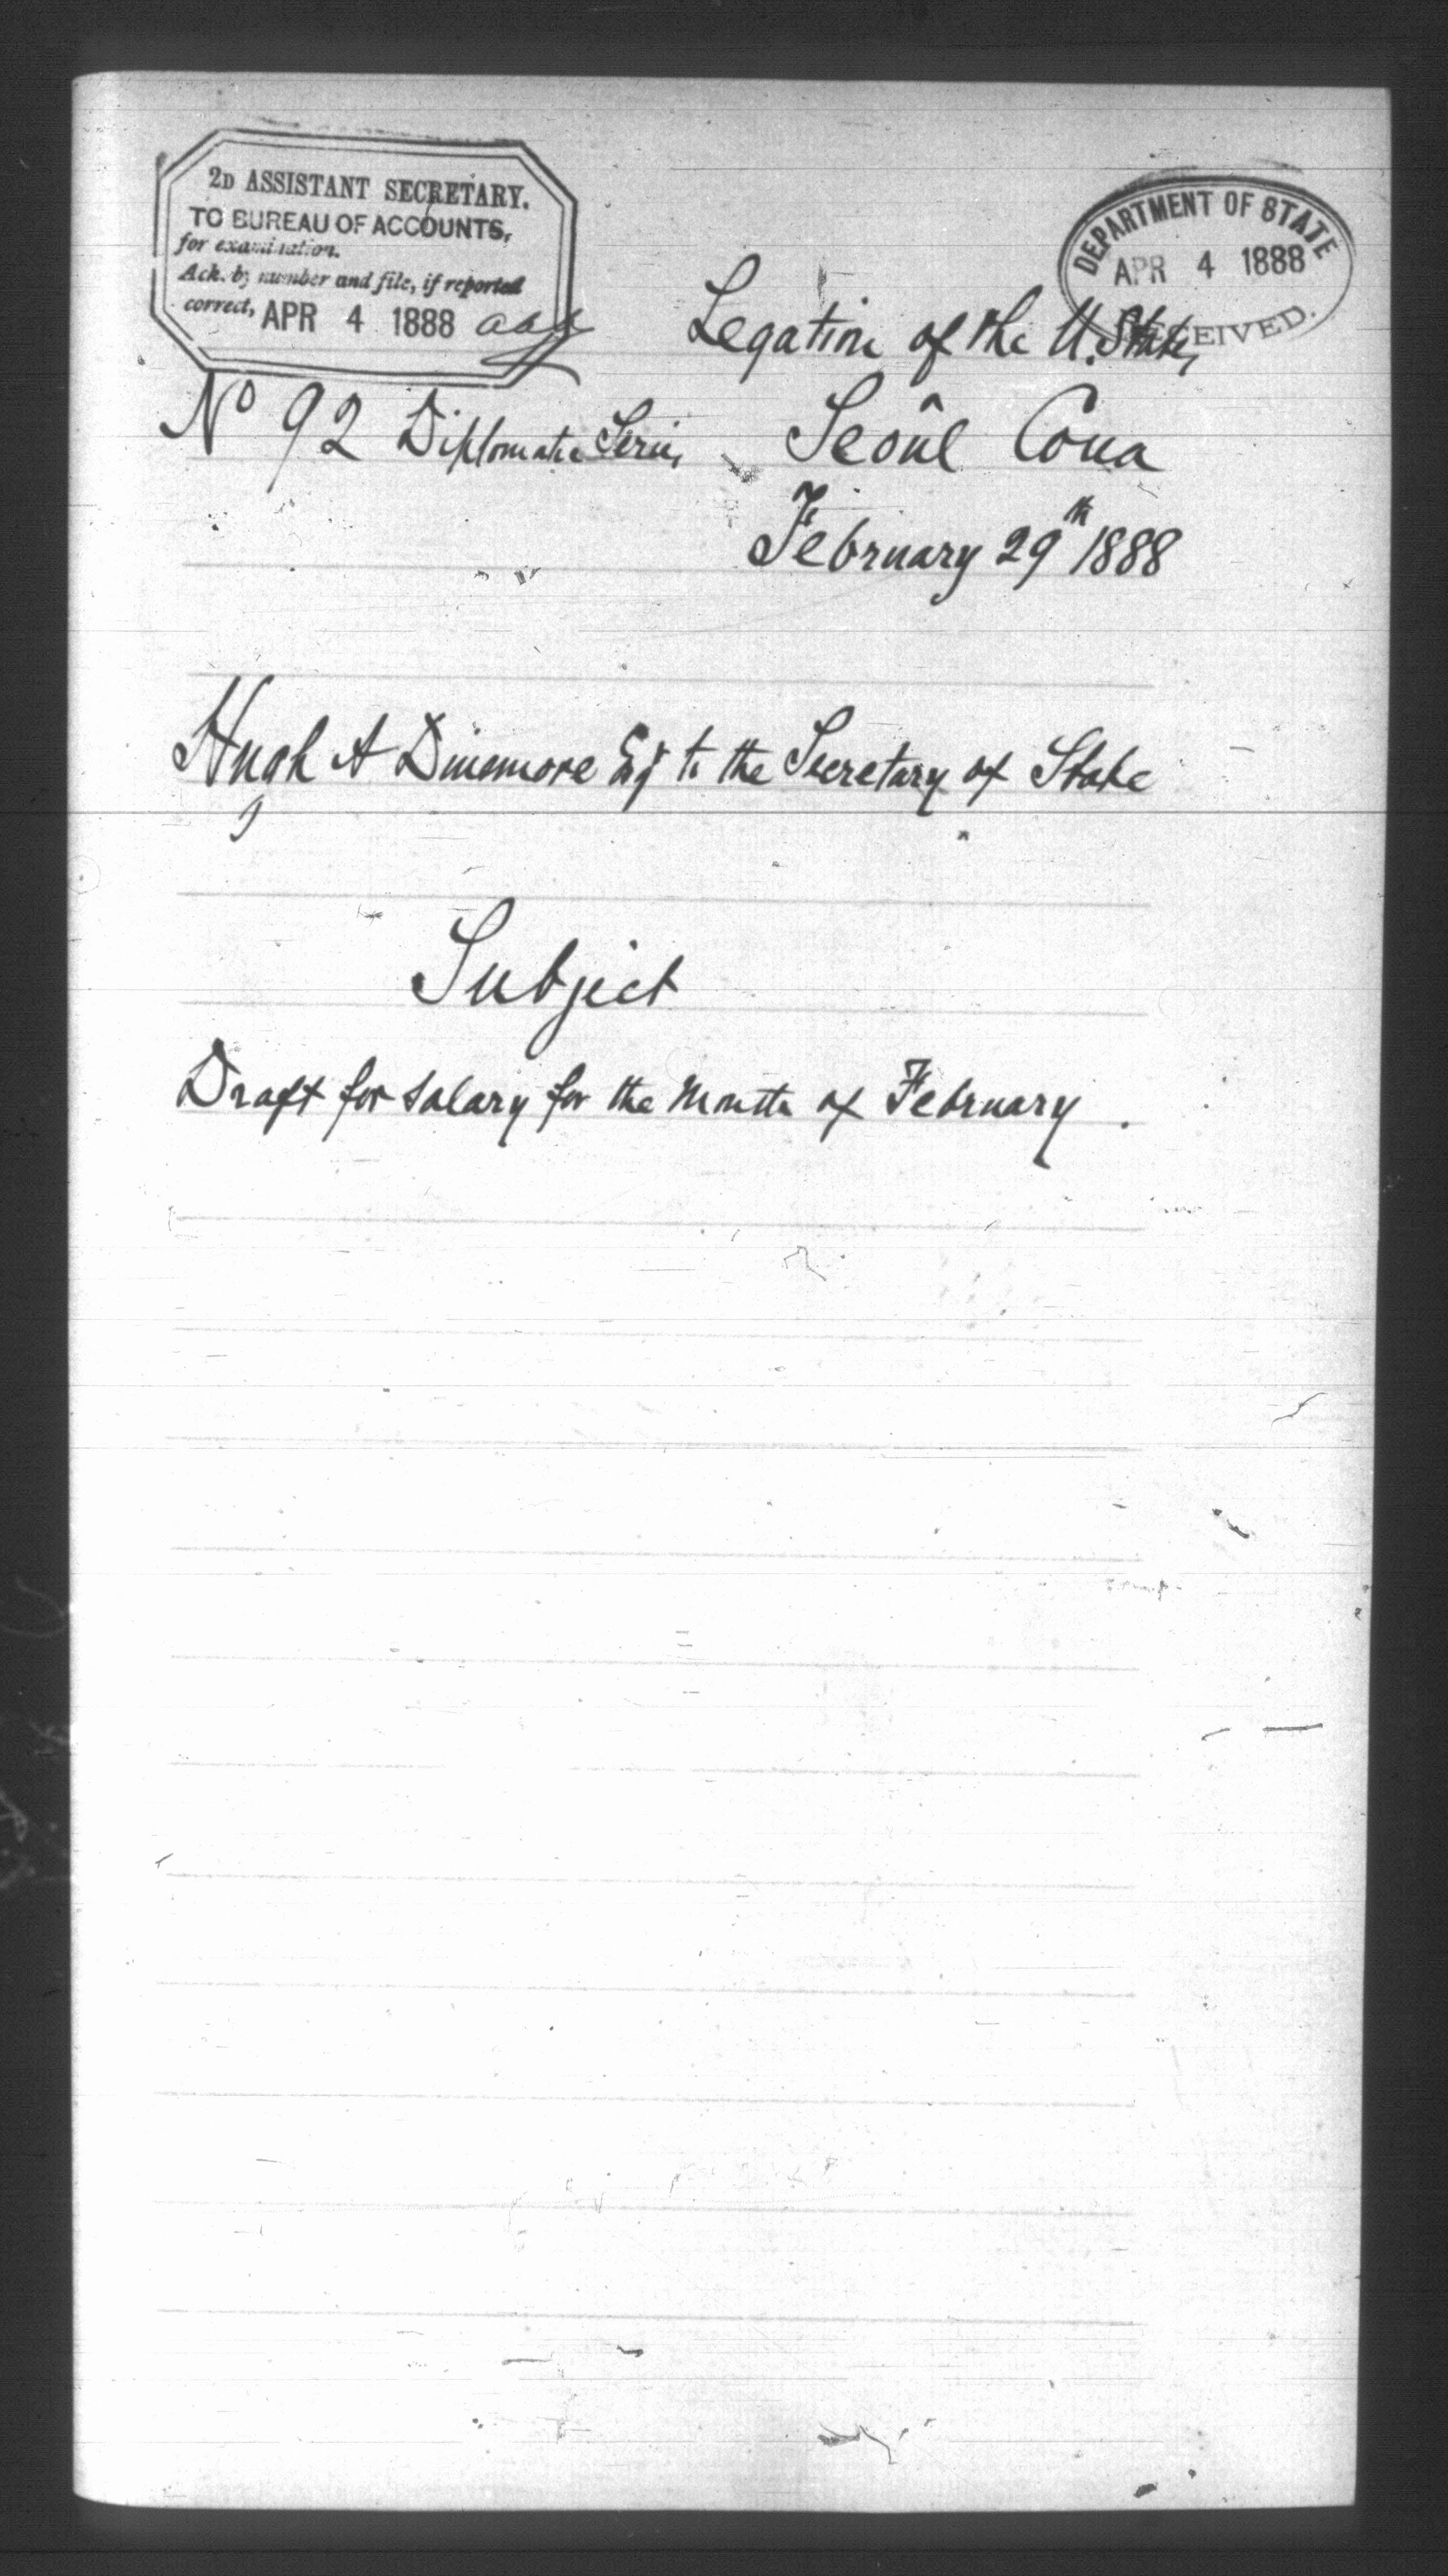 2D ASSISTANT SECRETARY.
TO BUREAU OF ACCOUNTS,
for examination.
Ack. by number and file, if reported
correct, APR 4 1888
DEPARTMENT OF STATE
APR 4 1888
RECEIVED.
Legation of the U. States
No 92 Diplomatic Series
Seoul Corea
February 29th 1888
Hugh A Dinsmore Esq to the Secretary of State
Subject
Draft for salary for the month of February.